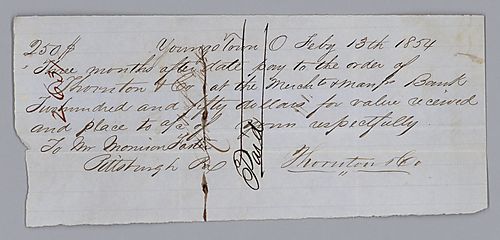 250$ Youngstown O Feby 13th 1854
Three months after date pay to the order of
Thornton & Co at the Mercht & Manf Bank
Two hundred and fifty dollars for value received
and place to a/c of yours respectfully
To Mr Morrison Foster
Pittsburgh Pa Thornton & Co
Paid